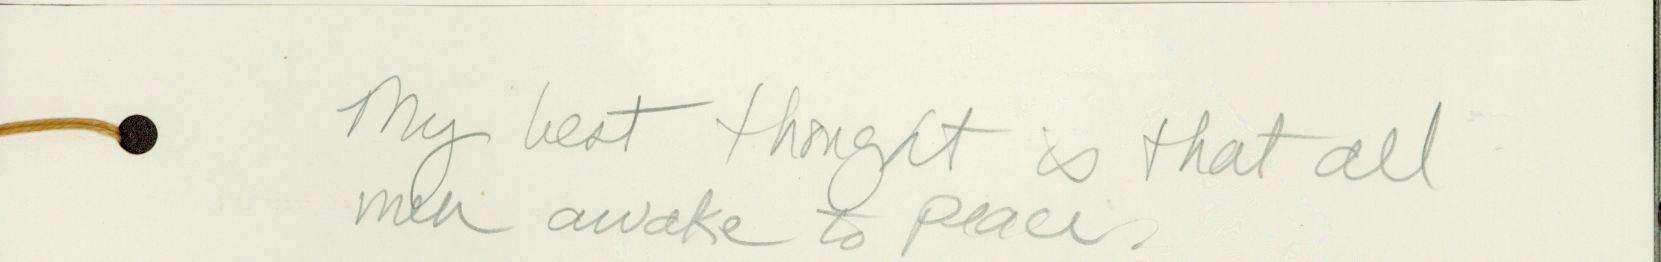 My best thought is that all
men awake to peace.